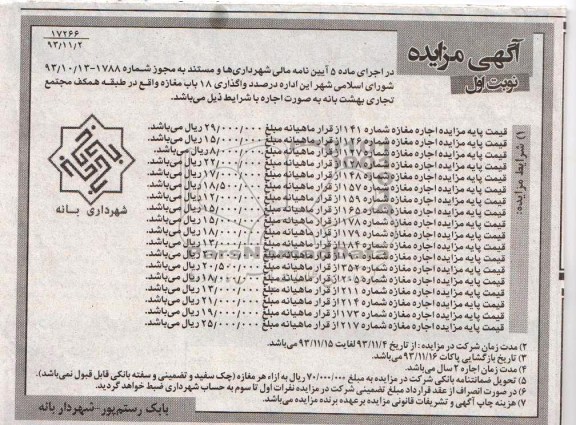 ۱۷۲۶۶
۹۳/۱۱/۲
آگهی مزایده
نوبت اول
در اجرای ماده ۵ آیین نامه مالی شهرداری‌ها و مستند به مجوز شماره ۱۷۸۸-۹۳/۱۰/۱۳
شورای اسلامی شهر این اداره درصدد واگذاری ۱۸ باب مغازه واقع در طبقه همکف مجتمع
تجاری بهشت بانه به صورت اجاره با شرایط ذیل می‌باشد.
۱) شرایط مزایده:
قیمت پایه مزایده اجاره مغازه شماره ۱۴۱ از قرار ماهیانه مبلغ ۲۹/۰۰۰/۰۰۰ ریال می‌باشد.
قیمت پایه مزایده اجاره مغازه شماره از قرار ماهیانه مبلغ ۱۵/۰۰۰/۰۰۰ ریال می‌باشد.
قیمت پایه مزایده اجاره مغازه شماره از قرار ماهیانه مبلغ ۸/۰۰۰/۰۰۰ ریال می‌باشد.
قیمت پایه مزایده اجاره مغازه شماره از قرار ماهیانه مبلغ ۲۲/۰۰۰/۰۰۰ ریال می‌باشد.
قیمت پایه مزایده اجاره مغازه شماره ۱۴۸ از قرار ماهیانه مبلغ ۱۷/۰۰۰/۰۰۰ ریال می‌باشد.
قیمت پایه مزایده اجاره مغازه شماره ۱۵۷ از قرار ماهیانه مبلغ ۱۸/۵۰۰/۰۰۰ ریال می‌باشد.
قیمت پایه مزایده اجاره مغازه شماره ۱۵۹ از قرار ماهیانه مبلغ ۱۲/۰۰۰/۰۰۰ ریال می‌باشد.
قیمت پایه مزایده اجاره مغازه شماره ۱۶۵ از قرار ماهیانه مبلغ ۱۵/۰۰۰/۰۰۰ ریال می‌باشد.
قیمت پایه مزایده اجاره مغازه شماره ۲۷۸ از قرار ماهیانه مبلغ ۱۵/۰۰۰/۰۰۰ ریال می‌باشد.
قیمت پایه مزایده اجاره مغازه شماره ۱۷۹ از قرار ماهیانه مبلغ ۱۸/۰۰۰/۰۰۰ ریال می‌باشد.
قیمت پایه مزایده اجاره مغازه شماره ۱۸۴ از قرار ماهیانه مبلغ ۱۳/۰۰۰/۰۰۰ ریال می‌باشد.
قیمت پایه مزایده اجاره مغازه شماره از قرار ماهیانه مبلغ ریال می‌باشد.
قیمت پایه مزایده اجاره مغازه شماره ۳۵۲ از قرار ماهیانه مبلغ ۲۰/۵۰۰/۰۰۰ ریال می‌باشد.
قیمت پایه مزایده اجاره مغازه شماره ۲۰۵ از قرار ماهیانه مبلغ ۱۸/۰۰۰/۰۰۰ ریال می‌باشد.
قیمت پایه مزایده اجاره مغازه شماره ۲۱۱ از قرار ماهیانه مبلغ ۱۴/۰۰۰/۰۰۰ ریال می‌باشد.
قیمت پایه مزایده اجاره مغازه شماره ۲۱۴ از قرار ماهیانه مبلغ ۲۱/۰۰۰/۰۰۰ ریال می‌باشد.
قیمت پایه مزایده اجاره مغازه شماره ۱۷۳ از قرار ماهیانه مبلغ ۱۹/۰۰۰/۰۰۰ ریال می‌باشد.
قیمت پایه مزایده اجاره مغازه شماره ۲۱۷ از قرار ماهیانه مبلغ ۲۵/۰۰۰/۰۰۰ ریال می‌باشد.
شهرداری بانه
۲) مدت زمان شرکت در مزایده: از تاریخ ۹۳/۱۱/۴ لغایت ۹۳/۱۱/۱۵ می‌باشد.
۳) تاریخ بازگشایی پاکات ۹۳/۱۱/۱۶ می‌باشد.
۴) مدت زمان اجاره ۲ سال می‌باشد.
۵) تحویل ضمانتنامه بانکی شرکت در مزایده به مبلغ ۷۰/۰۰۰/۰۰۰ ریال به ازاء هر مغازه (چک سفید و تضمینی و سفته بانکی قابل قبول نمی‌باشد).
۶) در صورت انصراف از عقد قرارداد مبلغ تضمینی شرکت در مزایده نفرات اول تا سوم به حساب شهرداری ضبط خواهد گردید.
۷) هزینه چاپ آگهی و تشریفات قانونی مزایده برعهده برنده مزایده می‌باشد.
بابک رستم‌پور-شهردار بانه